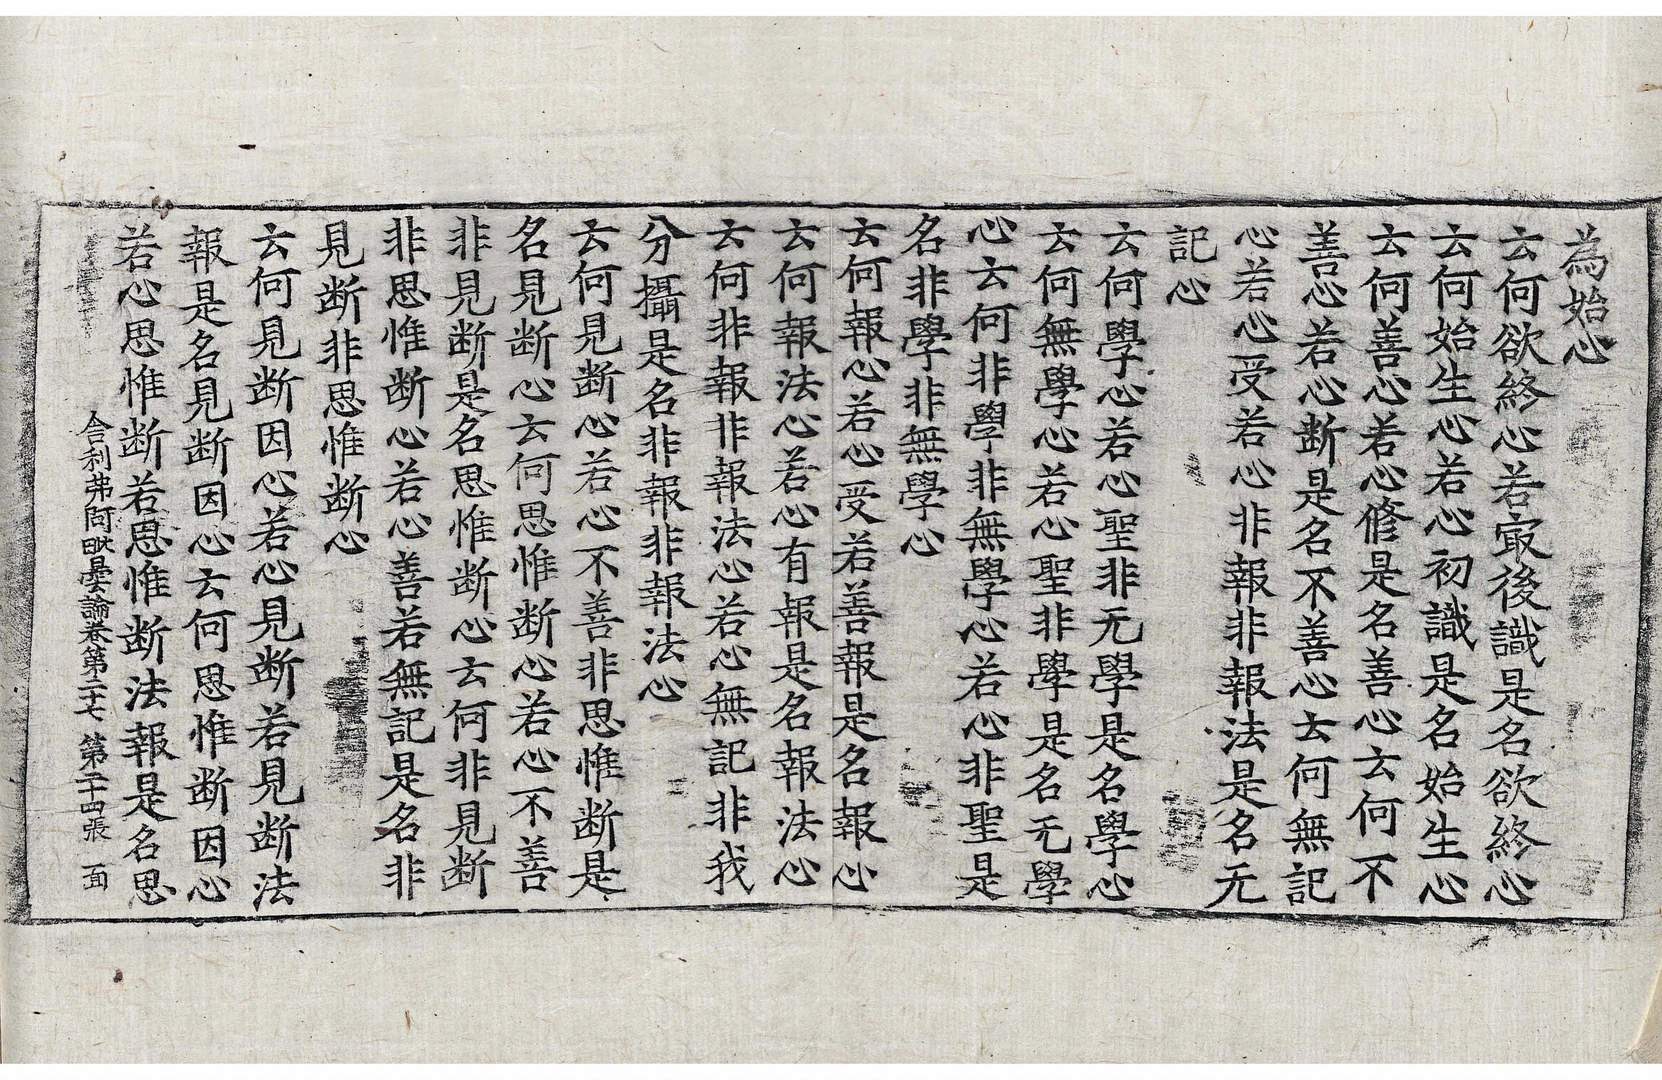 為始心
云何欲終心若㝡後識是名欲終心
云何始生心若心初識是名始生心
云何善心若心修是名善心云何不
善心若心断是名不善心云何無記
心若心受若心非報非報法是名无
記心
云何學心若心聖非无學是名學心
云何無學心若心聖非學是名无學
心云何非學非無學心若心非聖是
名非學非無學心
云何報心若心受若善報是名報心
云何報法心若心有報是名報法心
云何非報非報法心若心無記非我
分攝是名非報非報法心
云何見断心若心不善非思惟断是
名見断心云何思惟断心若心不善
非見断是名思惟断心云何非見断
非思惟断心若心善若無記是名非
見断非思惟断心
云何見断因心若心見断若見断法
報是名見断因心云何思惟断因心
若心思惟断若思惟断法報是名思
舍利弗阿毗曇論卷第二十七 第二十四張 一面